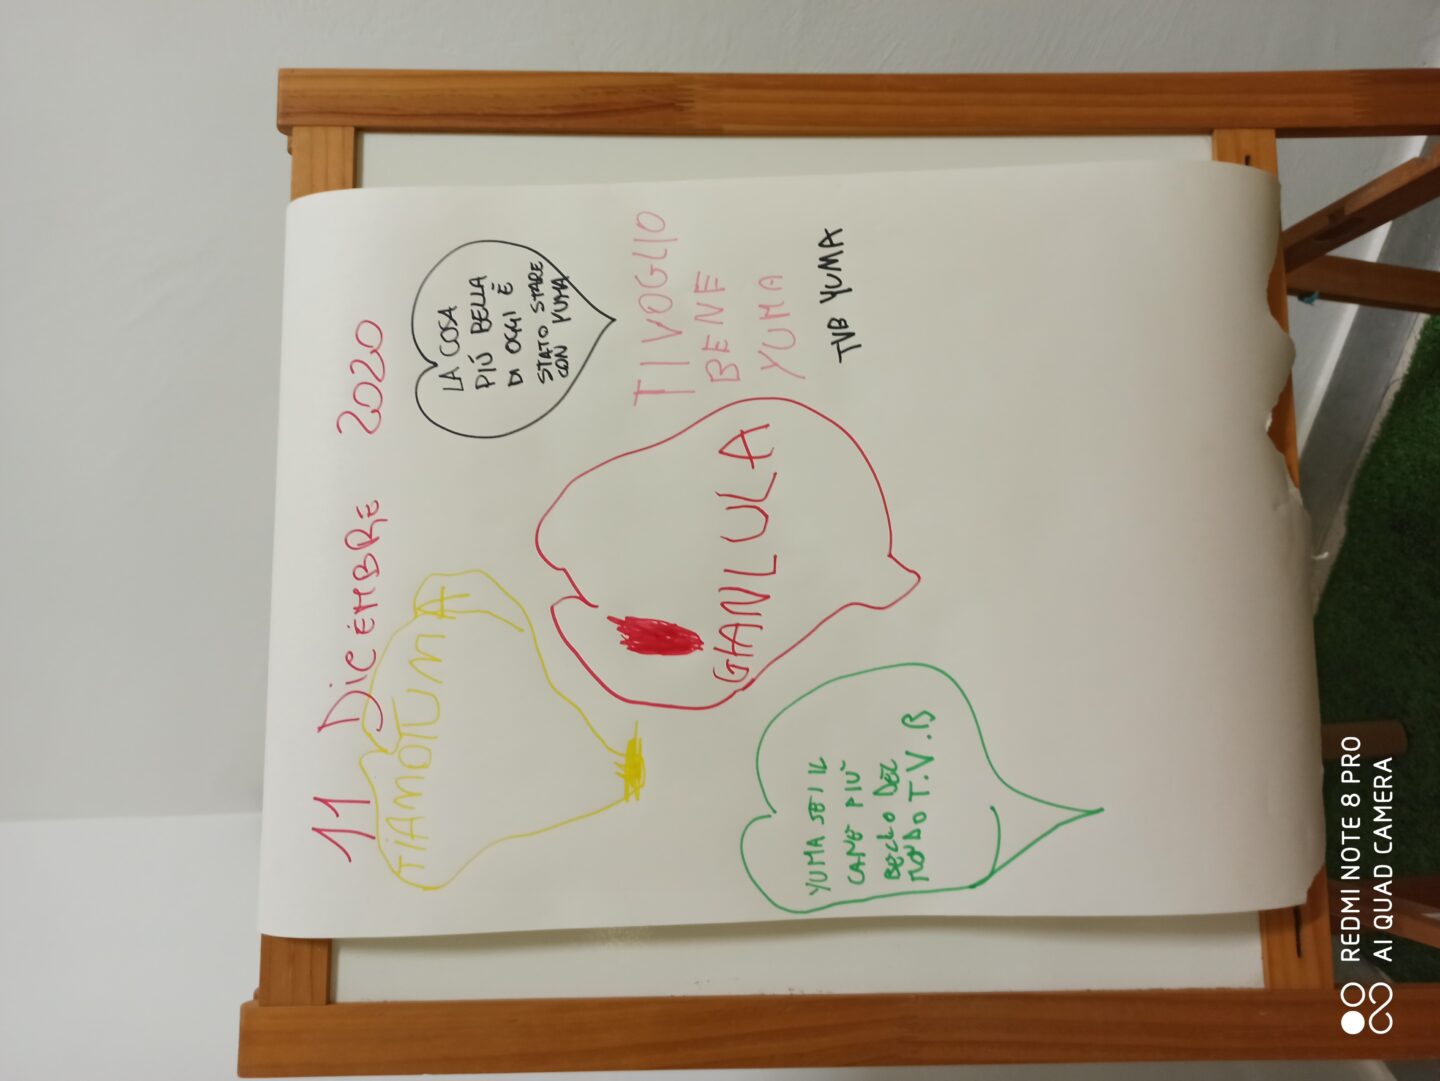 11 DICEMBRE 2020
TIAMOTUMA
LA COSA
PIÚ BELLA
DI OGGI È
STATO STARE
CON YUMA
GIANLULA
TI VOGLIO
BENE
YUMA
TVB YUMA
YUMA SEI IL
CANE PIÙ
BELLO DEL
MONDO T.V.B
REDMI NOTE 8 PRO
AI QUAD CAMERA